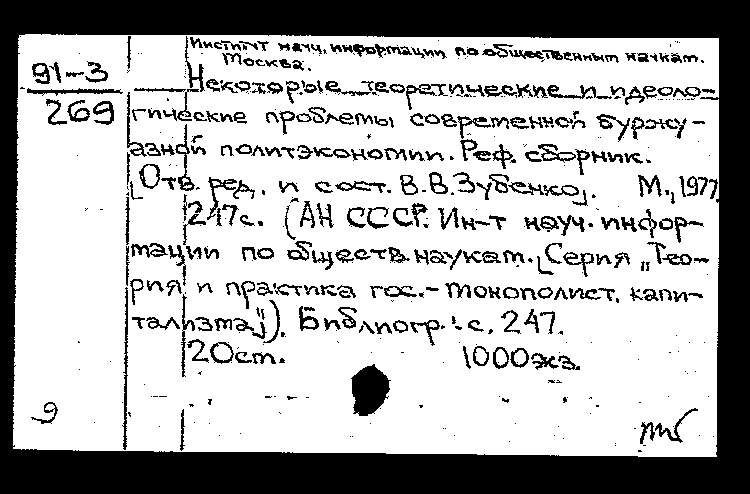 Институт науч. информации по общественным наукам.
Москва.
91-3
269
Некоторые теоретические и идеоло-
гические проблемы современной буржу-
азной политэкономии. Реф. сборник.
[Отв. ред. и сост. В.В. Зубенко]. М., 1977.
247с. (АН СССР. Ин-т науч. инфор-
мации по обществ. наукам. [Серия „Тео-
рия и практика гос.-монополист. капи-
тализма"]). Библиогр.: с. 247.
20см. 1000экз.
9